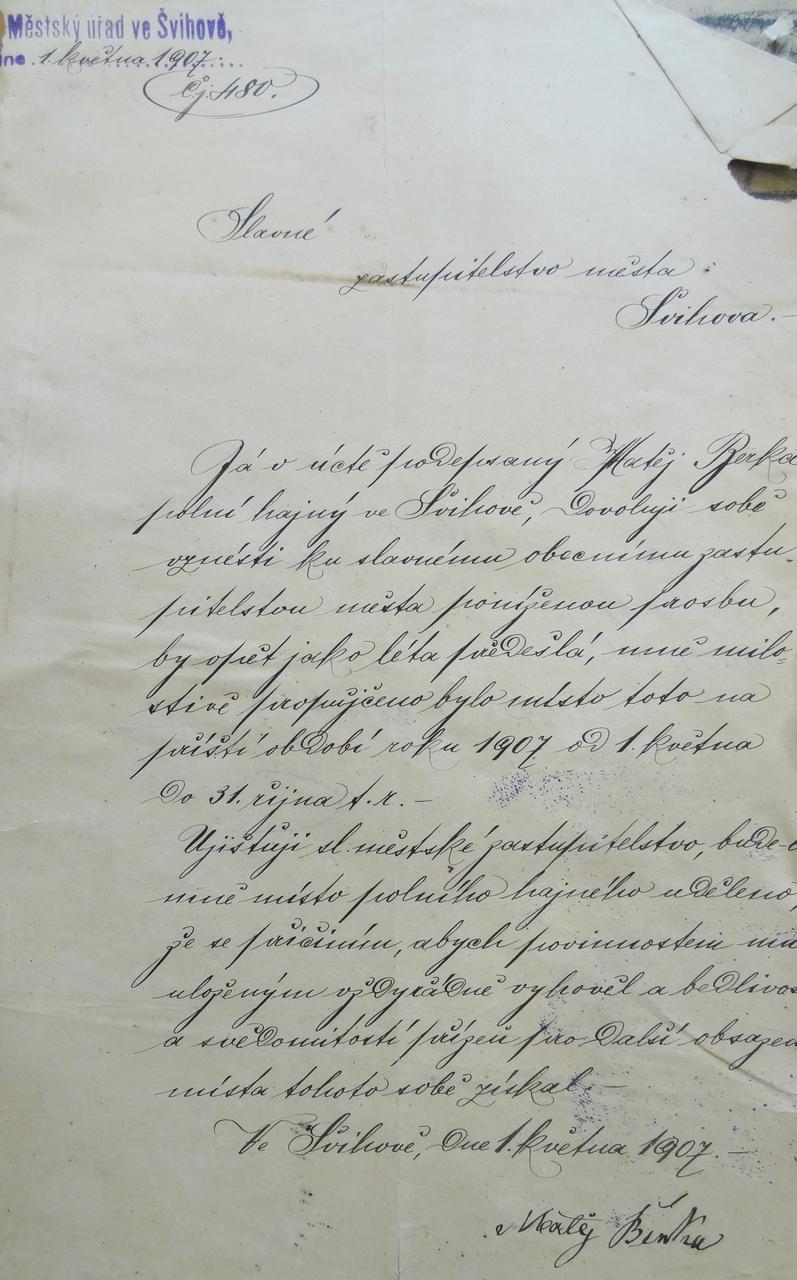 Městský úřad ve Švihově,
dne 1 května 1907.
Čj. 480.
Slavné
zastupitelstvo města
Švihova. –
Já v úctě podepsaný Matěj Berka
polní hajný ve Švihově, dovoluji sobě
vznésti ku slavnému obecnímu zastu-
pitelstvu města poníženou prosbu,
by opět jako léta předešlá, mně milo-
stivě propůjčeno bylo místo toto na
příští období roku 1907 od 1. května
do 31. října t. r. –
Ujišťuji sl. městské zastupitelstvo, bude-
mně místo polního hajného uděleno,
že se přičiním, abych povinnostem
uloženým vždy řádně vyhověl a bedlivos
a svědomitostí přízeň pro další obsazen
místa tohoto sobě získal. –
Ve Švihově, dne 1. května 1907. –
Matěj